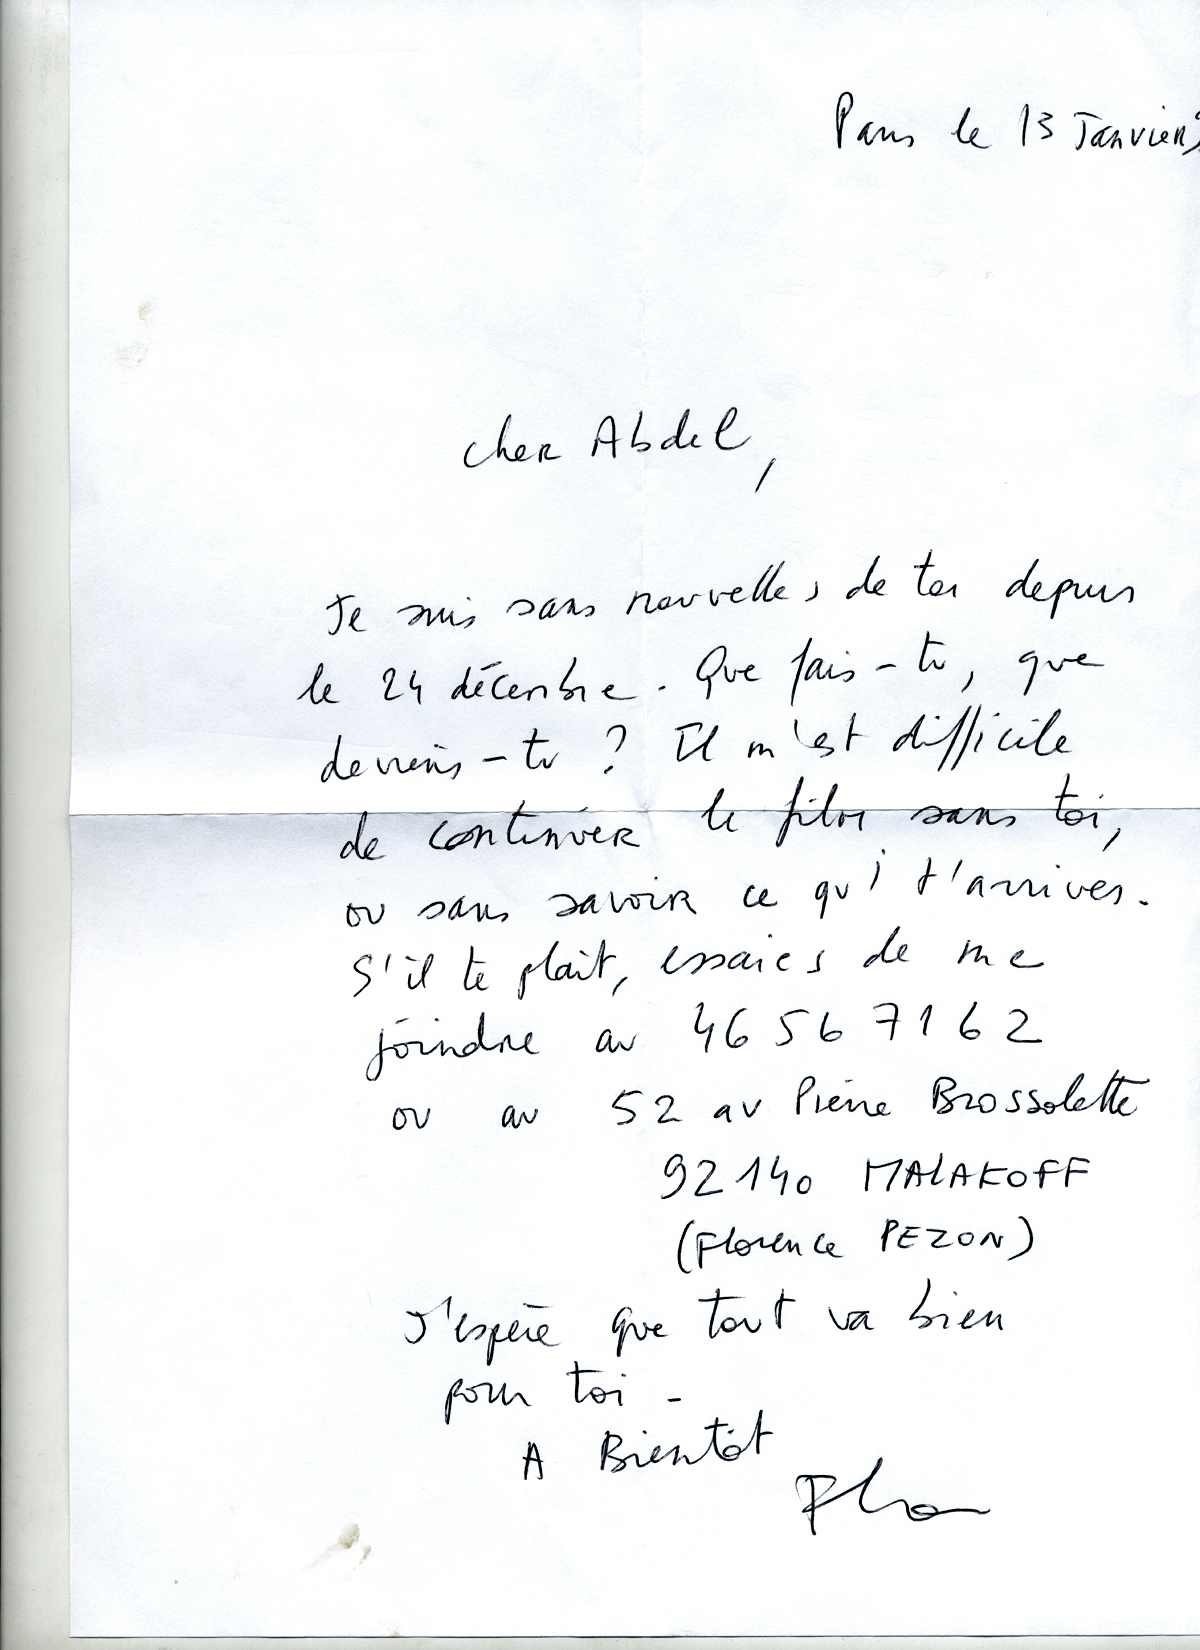 Paris le 13 Janvier
cher Abdel,
Je suis sans nouvelles de toi depuis
le 24 décembre. Que fais-tu, que
deviens-tu ? Il m'est difficile
de continuer le film sans toi,
ou sans savoir ce qui t'arrives.
S'il te plait, essaies de me
joindre au 46 56 71 62
ou au 52 av Pierre Brossolette
92140 MALAKOFF
(Florence PEZON)
J'espère que tout va bien
pour toi -
A Bientôt
Flo